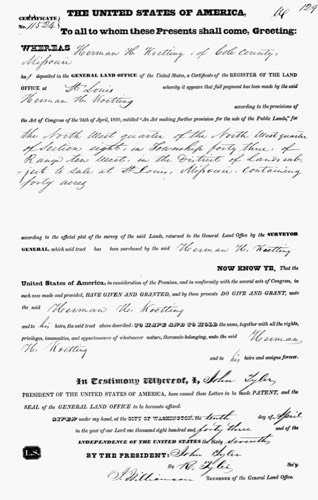 129
THE UNITED STATES OF AMERICA,
CERTIFICATE
No. 11524
To all to whom these Presents shall come, Greeting:
WHEREAS Herman H. Koetting, of Cole County,
Missouri
has deposited in the GENERAL LAND OFFICE of the United States, a Certificate of the REGISTER OF THE LAND
OFFICE at St Louis whereby it appears that full payment has been made by the said
Herman H. Koetting
according to the provisions of
the Act of Congress of the 24th of April, 1820, entitled "An Act making further provision for the sale of the Public Lands," for
the North West quarter of the North West quarter
of Section eight, in Township forty three, of
Range ten West, in the District of Lands sub-
ject to sale at St Louis, Missouri, containing
forty acres
according to the official plat of the survey of the said Lands, returned to the General Land Office by the SURVEYOR
GENERAL, which said tract has been purchased by the said Herman H. Koetting
NOW KNOW YE, That the
United States of America, in consideration of the Premises, and in conformity with the several acts of Congress, in
such case made and provided, HAVE GIVEN AND GRANTED, and by these presents DO GIVE AND GRANT, unto
the said Herman H. Koetting
and to his heirs, the said tract above described: TO HAVE AND TO HOLD the same, together with all the rights,
privileges, immunities, and appurtenances of whatsoever nature, thereunto belonging, unto the said Herman
H. Koetting
and to his heirs and assigns forever.
In Testimony Whereof, I, John Tyler
PRESIDENT OF THE UNITED STATES OF AMERICA, have caused these Letters to be made PATENT, and the
SEAL of the GENERAL LAND OFFICE to be hereunto affixed.
GIVEN under my hand, at the CITY OF WASHINGTON, the tenth day of April
in the Year of our Lord one thousand eight hundred and forty three and of the
INDEPENDENCE OF THE UNITED STATES the Sixty seventh
BY THE PRESIDENT: John Tyler
L.S.
By R. Tyler Sec'y.
J. Williamson RECORDER of the General Land Office.